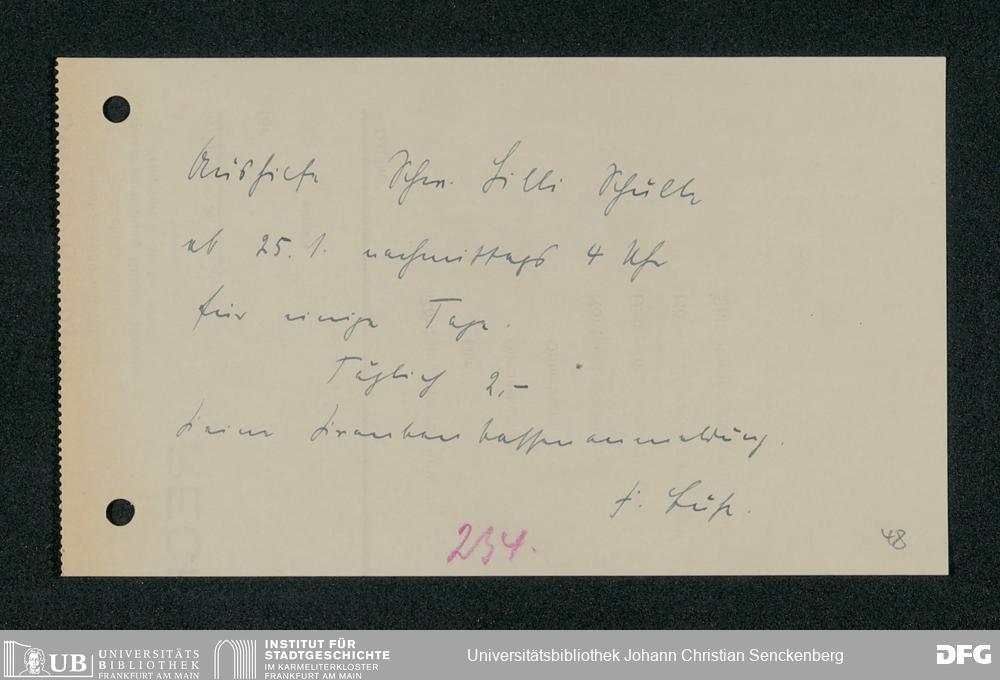 Aushilfe Schw. Lilli Schulz
ab 25. 1. nachmittags 4 Uhr
für einige Tage.
Täglich 2,-
Keine Krankenkassenanmeldung.
234.
48
UB UNIVERSITÄTS
BIBLIOTHEK
FRANKFURT AM MAIN
INSTITUT FÜR
STADTGESCHICHTE
IM KARMELITERKLOSTER
FRANKFURT AM MAIN
Universitätsbibliothek Johann Christian Senckenberg
DFG